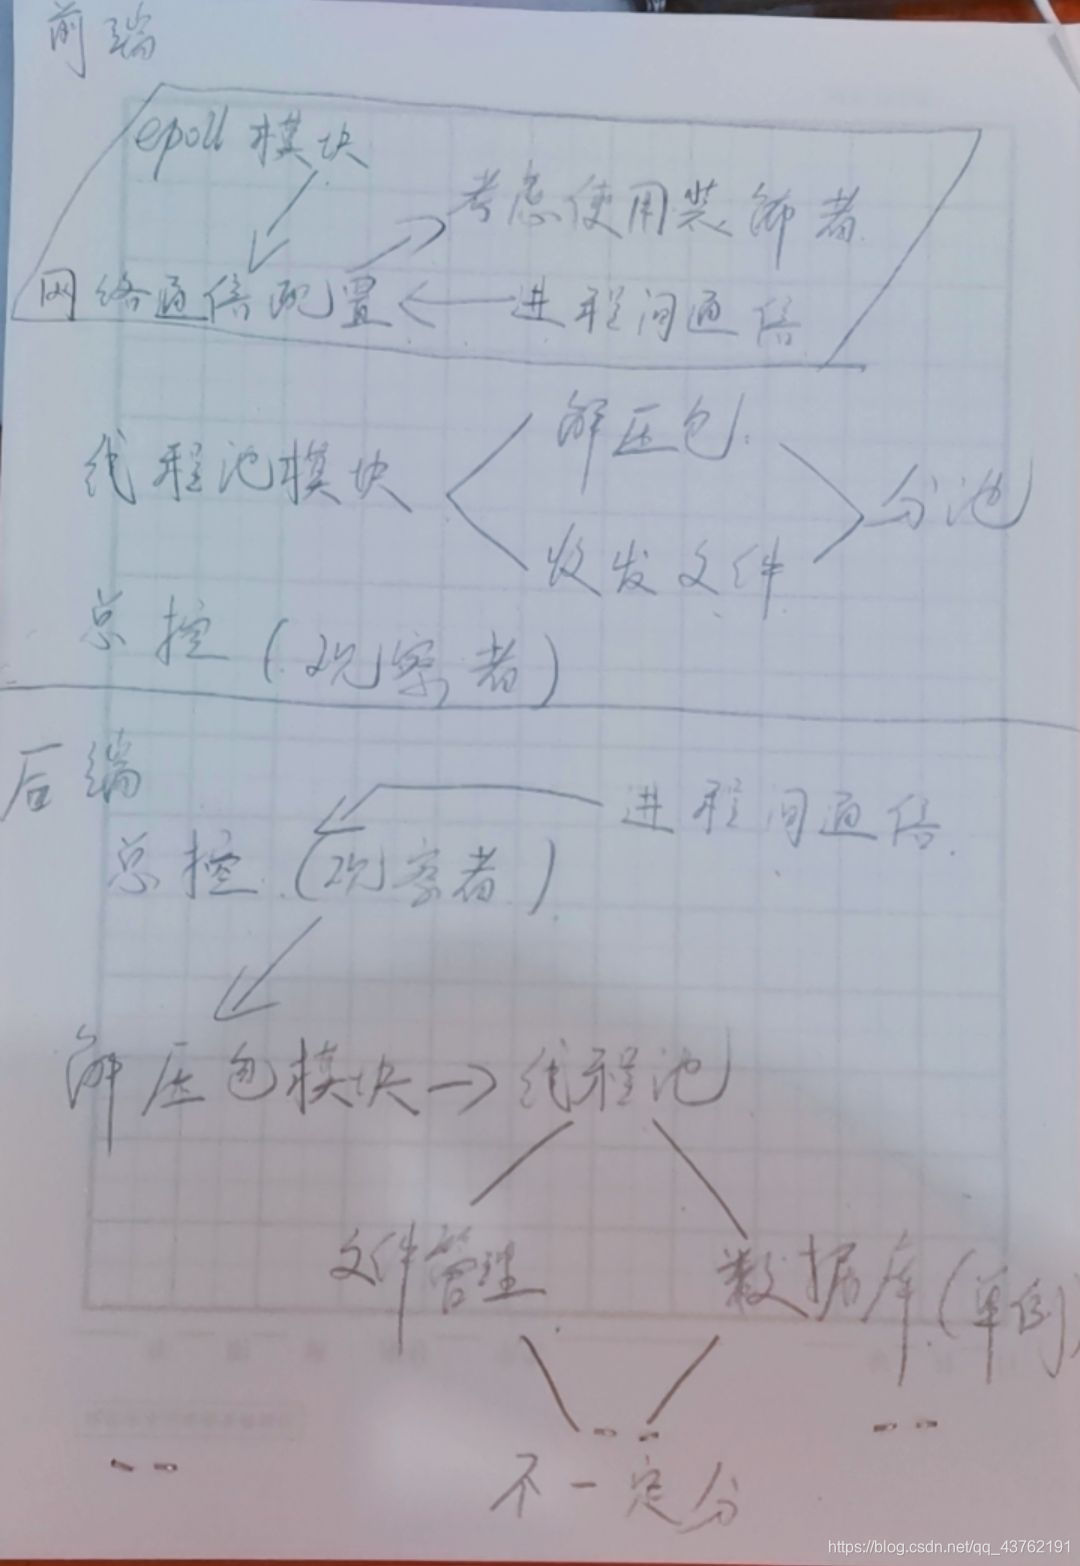 前端
epoll 模块
考虑使用装饰者
网络通信配置
进程间通信
解压包
线程池模块
分池
收发文件
总控 (观察者)
后端
进程间通信
总控 (观察者)
解压包模块 → 线程池
文件管理
数据库 (单例)
不一定分
https://blog.csdn.net/qq_43762191